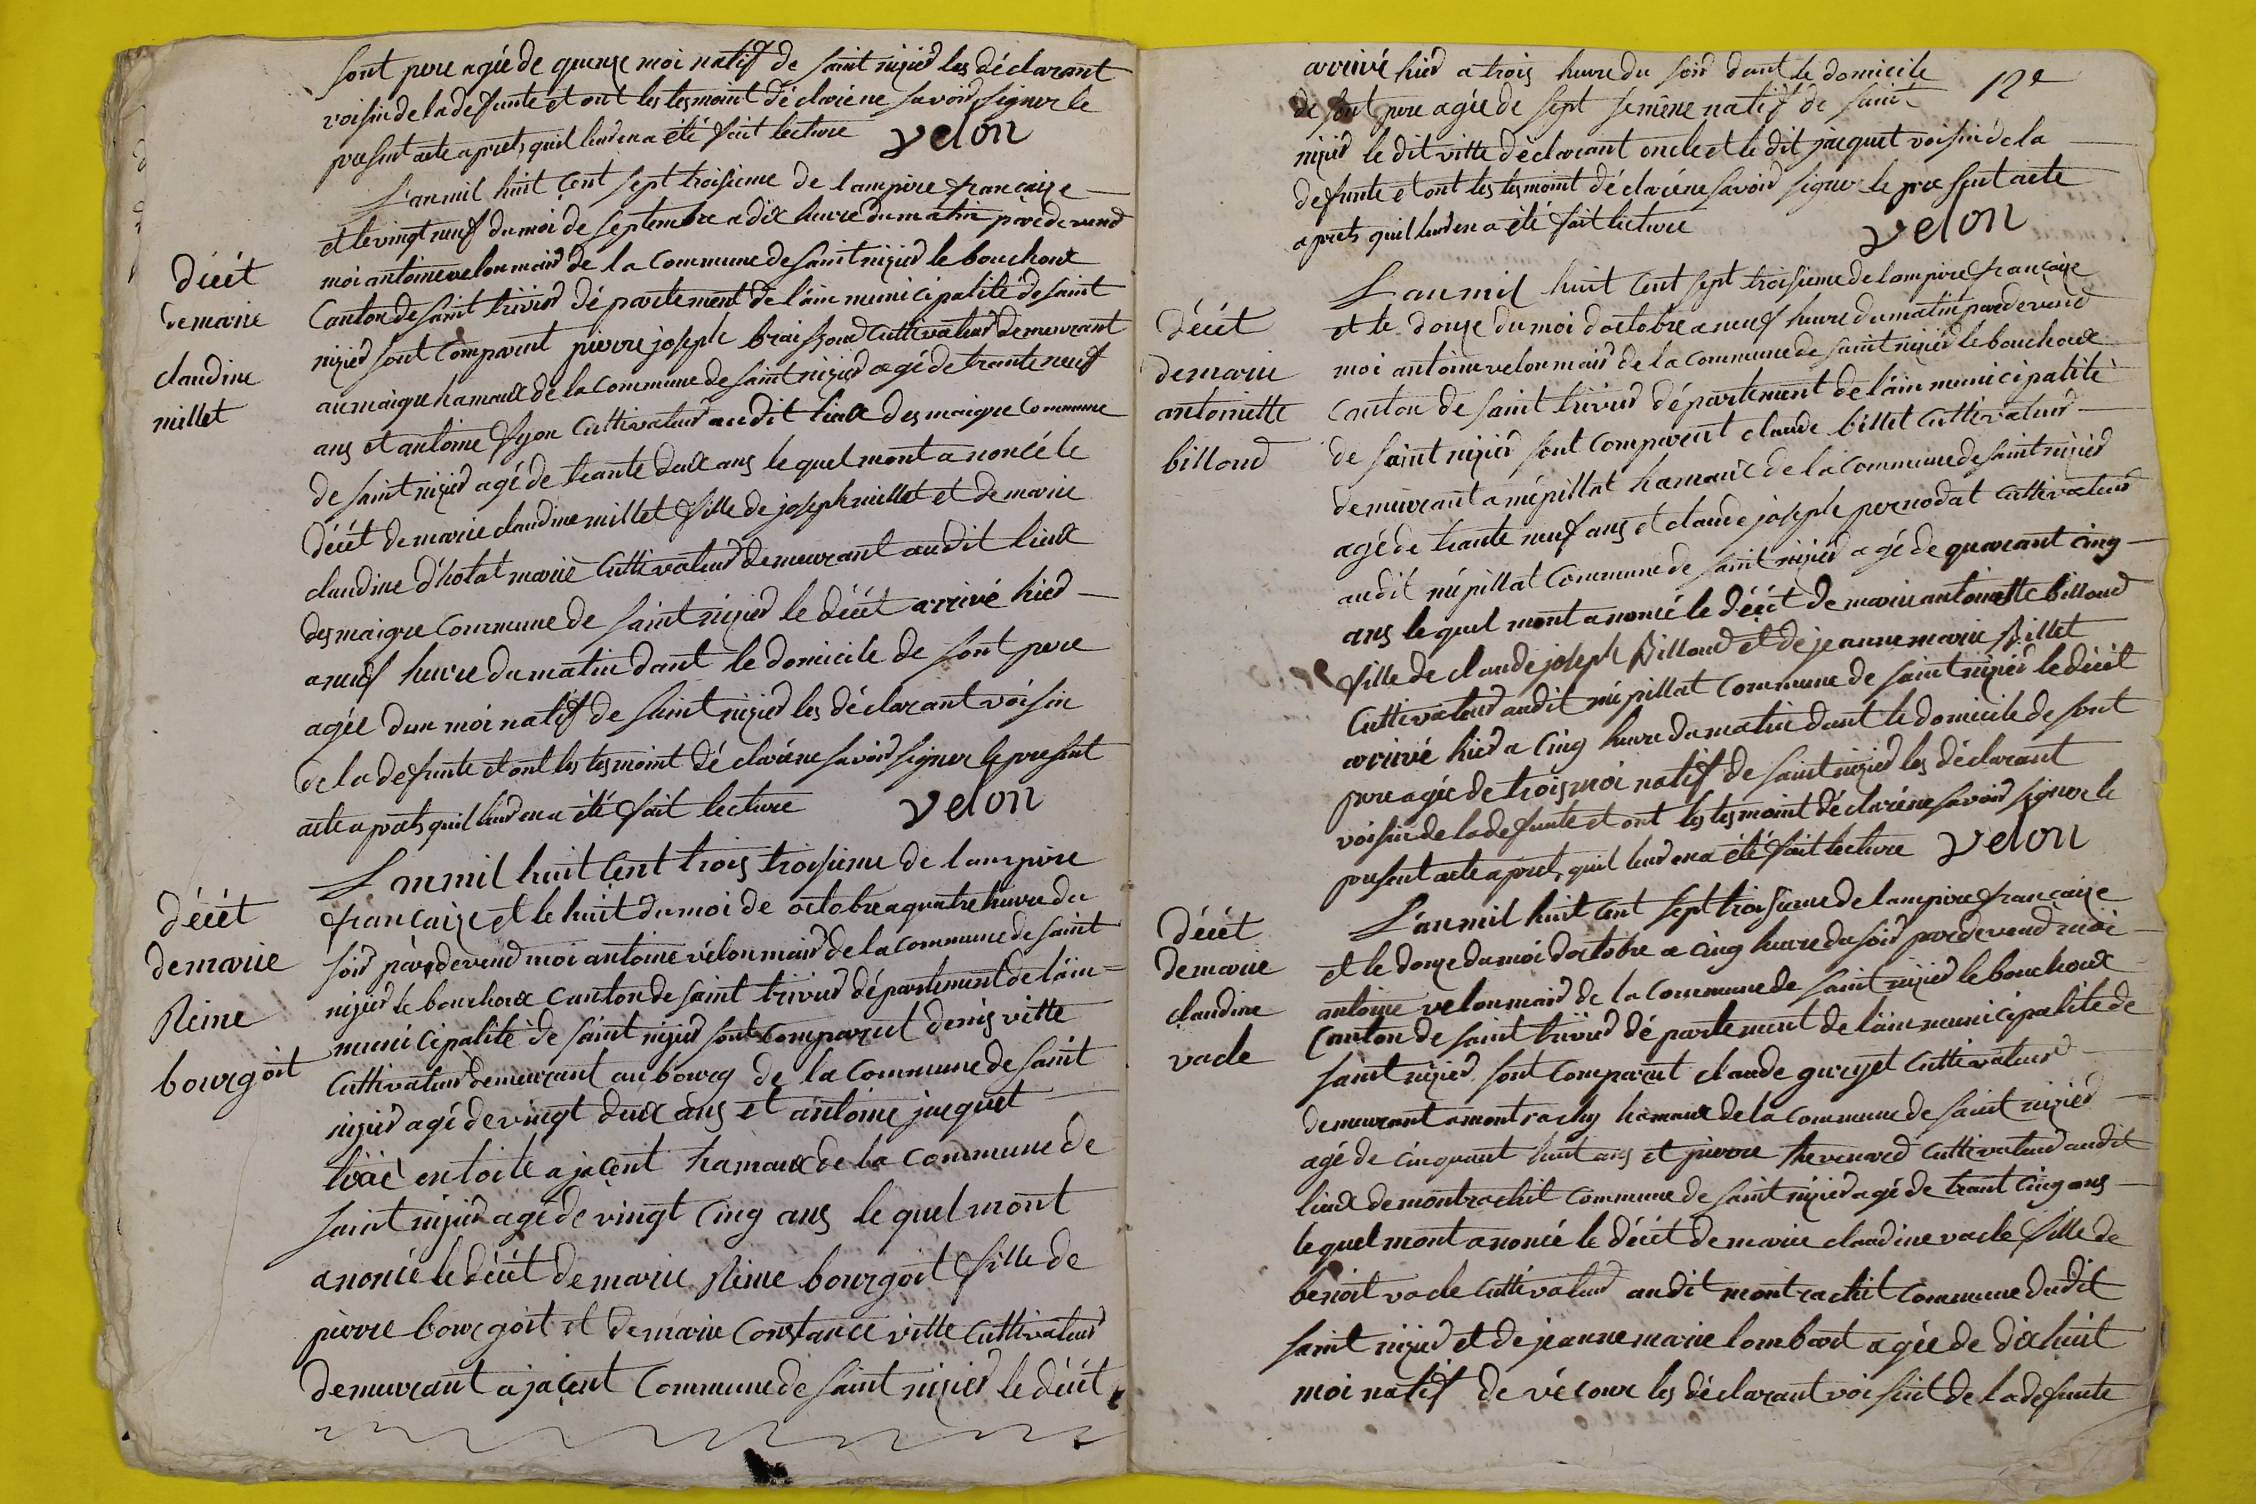 sont pere agée de quenze moi natif de saint nizier les déclarant
voisin de la defunte et ont les tesmoint déclaré ne savoir signer le
present acte aprets quil leur en a été fait lecture velon
L'an mil huit cent sept troisieme de lampire françaize
et le vingt neuf du moi de septembre a dix heure du matin pardevend
moi antoine velon maire de la commune de saint nizier le bouchoux
Canton de saint trivier département de l'ain municipalité de saint
nizier sont comparent pierre joseph braissoud cultivateur demeurant
au maigre hamaux de la commune de saint nizier agé de trante neuf
ans et antoine fyon cultivateur audit liaux des maigre commune
de saint nizier agé de trante deux ans lequel mont anoncé le
décét de marie claudine millet fille de joseph millet et de marie
claudine d'hotat marié cultivateur demeurant audit lieux
des maigre commune de saint nizier le décét arrivé hier
a neuf heure du matin dant le domicile de sont pere
agée dun moi natif de saint nizier les déclarant voisin
de la defunte et ont les tesmoint déclaré ne savoir signer le present
acte aprets quil leur en a été fait lecture velon
décét
de marie
claudine
millet
L'an mil huit cent trois troisieme de lampire
françaize et le huit du moi de octobre a quatre heure du
soir pardevend moi antoine vélon maire de la commune de saint
nizier le bouchoux canton de saint trivier département de l'ain =
municipalité de saint nizier sont comparent denis vitte
cultivateur demeurant au bourg de la commune de saint
nizier agé de vingt deux ans et antoine jacquet
en toile ajacent hamaux de la commune de
saint nizier agé de vingt cinq ans le quel mont
anoncé le décét de marie Reine bourgoit fille de
pierre bourgoit et de marie constance vitte cultivateur
demeurant ajacent commune de saint nizier le décét
décét
de marie
Reine
bourgoit
12e
arrivé hier a trois heure du soir dant le domicile
de sont pere agée de sept semène natif de saint
nizier le dit vitte déclarant oncle et le dit jacquet voisin de la
defunte et ont les tesmoint déclaré ne savoir signer le present acte
aprets quil leur en a été fait lecture velon
L'an mil huit cent sept troisieme de lampire françaize
et le douze du moi doctobre a neuf heure du matin pardevend
moi antoine velon maire de la commune de saint nizier le bouchoux
canton de saint trivier département de l'ain municipalité
de saint nizier sont comparent claude billet cultivateur
demeurant a mépillat hamaux de la commune de saint nizier
agé de trante neuf ans et claude joseph pernodat cultivateur
audit mépillat commune de saint nizier agé de quarant cinq
ans le quel mont anoncé le décét de marie antoinette billoud
fille de claude joseph Billoud et de jeanne marie Billet
cultivateur audit mépillat commune de saint nizier le décét
arrivé hier a cinq heure du matin dant le domicile de sont
pere agée de trois moi natif de saint nizier les déclarant
voisin de la defunte et ont les tesmoint déclaré ne savoir signer le
present acte aprets quil leur en a été fait lecture velon
décét
de marie
antoniette
billoud
L'an mil huit cent sept troisieme de lampire françaize
et le douze du moi doctobre a cinq heure du soir pardevend moi
antoine velon maire de la commune de saint nizier le bouchoux
Canton de saint trivier département de l'ain municipalité de
saint nizier sont comparent claude gueyet cultivateur
demeurant a montrachy hamaux de la commune de saint nizier
agé de cinquant huit ans et pierre thevenard cultivateur audit
lieux de montrachit commune de saint nizier agé de trant cinq ans
le quel mont anoncé le décét de marie claudine vacle fille de
benoit vacle cultivateur audit montrachit commune dudit
saint nizier et de jeanne marie lombart agée de dix huit
moi natif de vécour les déclarant voisint de la defunte
décét
de marie
claudine
vacle